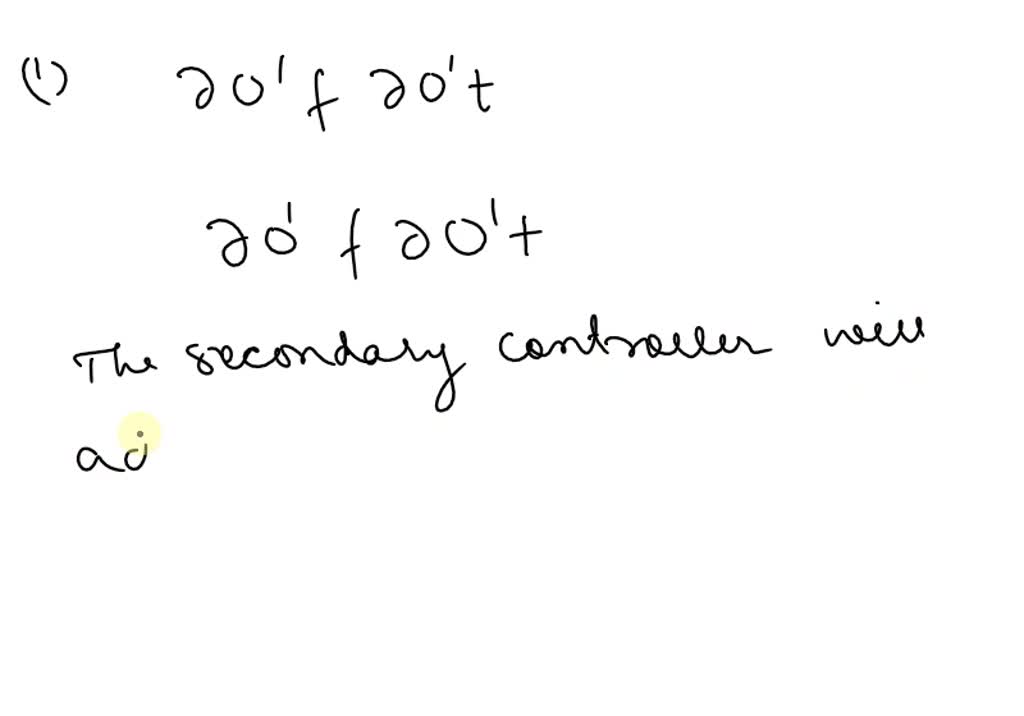 (1) 20'f 20't
20' f 20't
The secondary controller will
ad